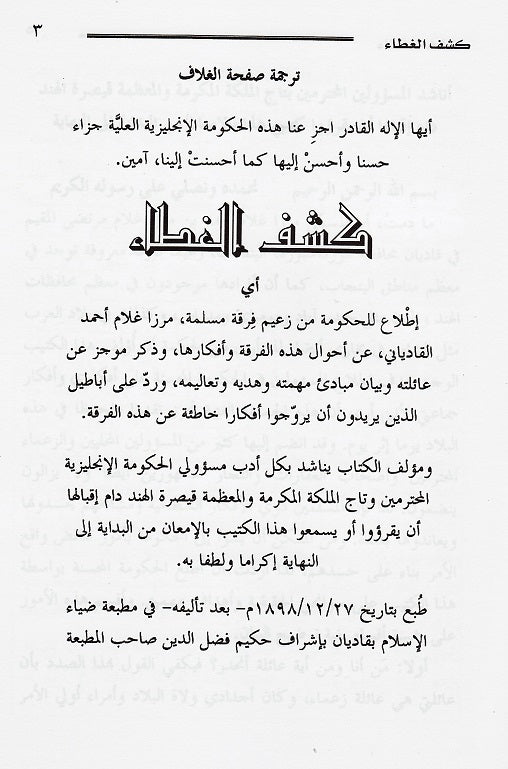 كشف الغطاء
٣
ترجمة صفحة الغلاف
أيها الإله القادر اجزِ عنا هذه الحكومة الإنجليزية العليَّة جزاء
حسنا وأحسنْ إليها كما أحسنتْ إلينا، آمين.
كشف الغطاء
أي
إطْلاع للحكومة من زعيم فِرقة مسلمة، مرزا غلام أحمد
القادياني، عن أحوال هذه الفرقة وأفكارها، وذكر موجز عن
عائلته وبيان مبادئ مهمته وهديه وتعاليمه، وردّ على أباطيل
الذين يريدون أن يروّجوا أفكارا خاطئة عن هذه الفرقة.
ومؤلف الكتاب يناشد بكل أدب مسؤولي الحكومة الإنجليزية
المحترمين وتاج الملكة المكرمة والمعظمة قيصرة الهند دام إقبالها
أن يقرؤوا أو يسمعوا هذا الكتيب بالإمعان من البداية إلى
النهاية إكراما ولطفا به.
طُبع بتاريخ ١٨٩٨/١٢/٢٧م- بعد تأليفه- في مطبعة ضياء
الإسلام بقاديان بإشراف حكيم فضل الدين صاحب المطبعة